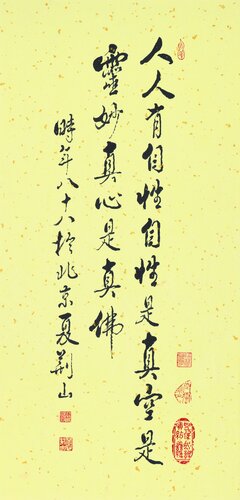 人人有自性自性是真空是
靈妙真心是真佛
時年八十八於北京夏荊山